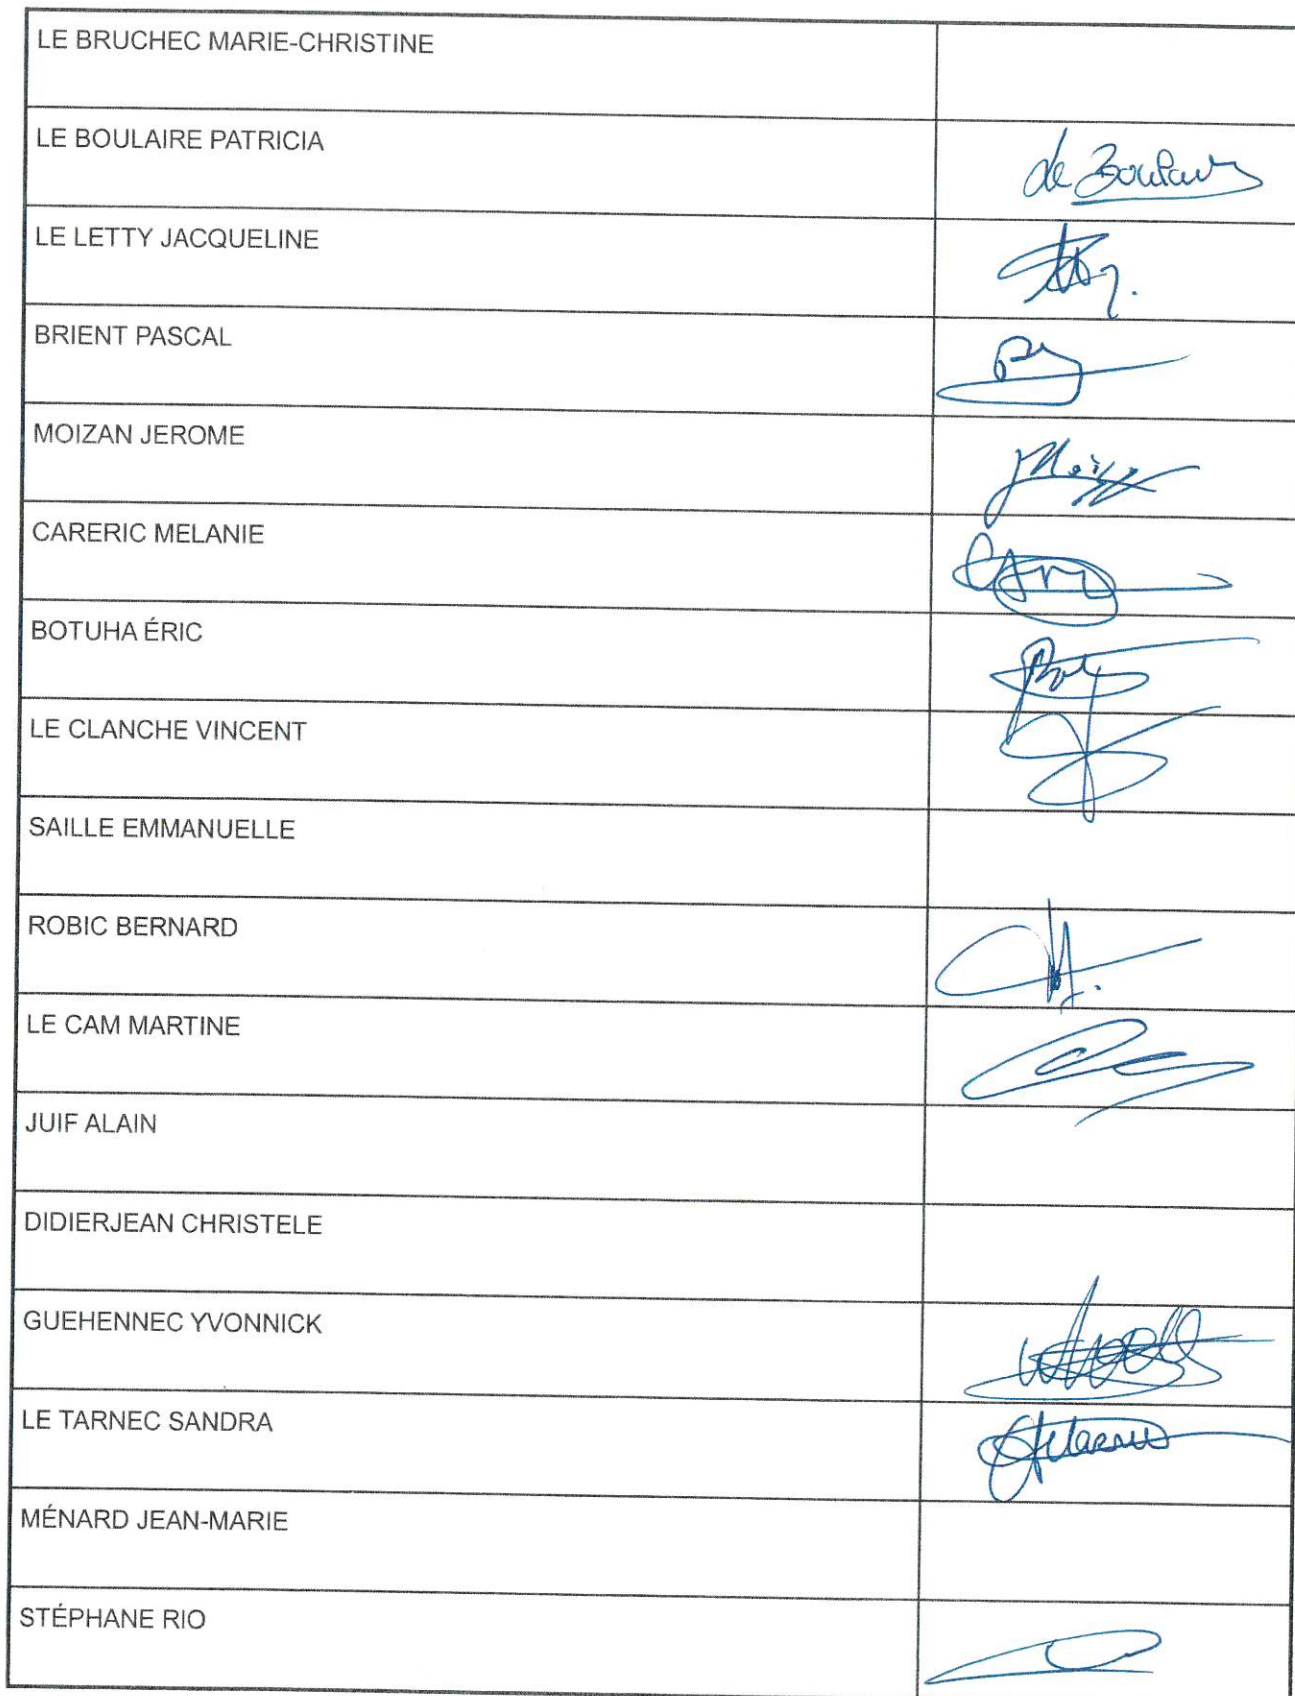 LE BRUCHEC MARIE-CHRISTINE
LE BOULAIRE PATRICIA
LE LETTY JACQUELINE
BRIENT PASCAL
MOIZAN JEROME
CARERIC MELANIE
BOTUHA ÉRIC
LE CLANCHE VINCENT
SAILLE EMMANUELLE
ROBIC BERNARD
LE CAM MARTINE
JUIF ALAIN
DIDIERJEAN CHRISTELE
GUEHENNEC YVONNICK
LE TARNEC SANDRA
MÉNARD JEAN-MARIE
STÉPHANE RIO